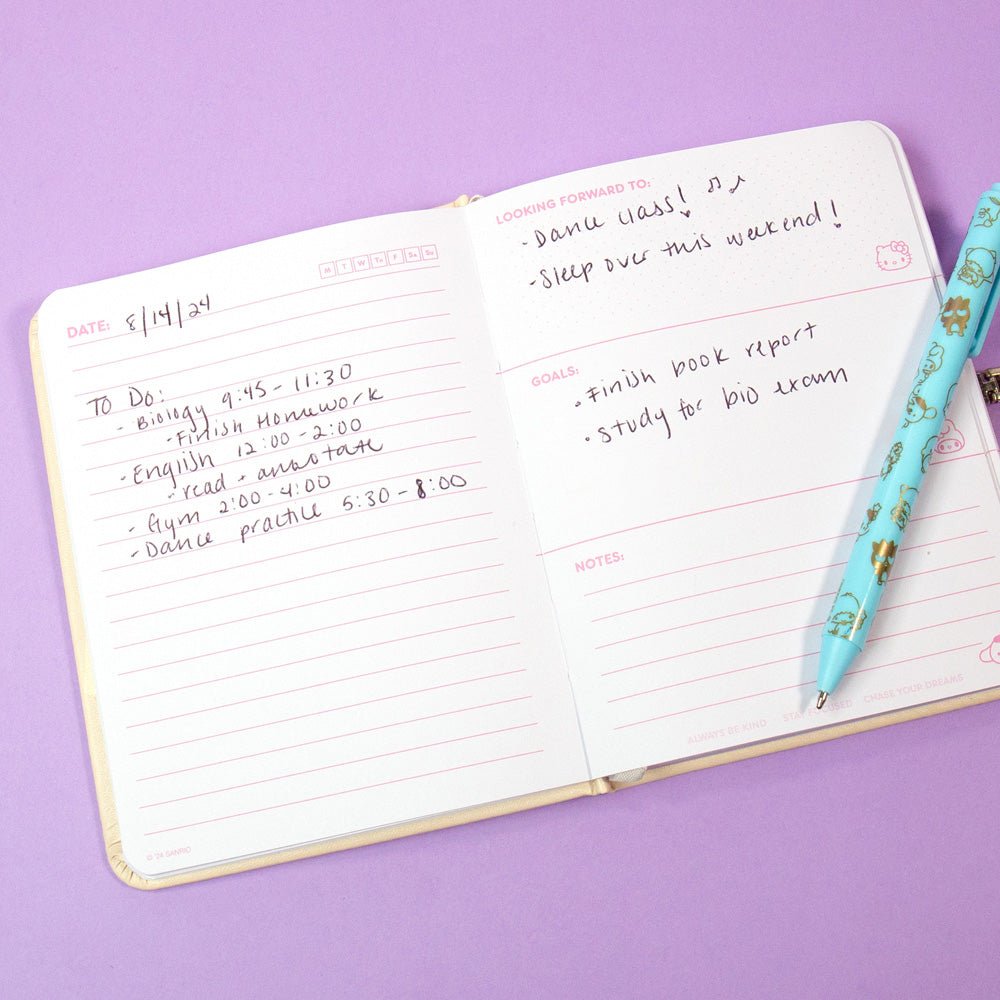 M T W Th F Sa Su
DATE: 8/14/24
To Do:
- Biology 9:45 - 11:30
- Finish Homework
- English 12:00 - 2:00
- read + annotate
- Gym 2:00 - 4:00
- Dance practice 5:30 - 8:00
© '24 SANRIO
LOOKING FORWARD TO:
- Dance class! ♫ ♪
- Sleep over this weekend!
GOALS:
• Finish book report
• study for bio exam
NOTES:
ALWAYS BE KIND STAY FOCUSED CHASE YOUR DREAMS